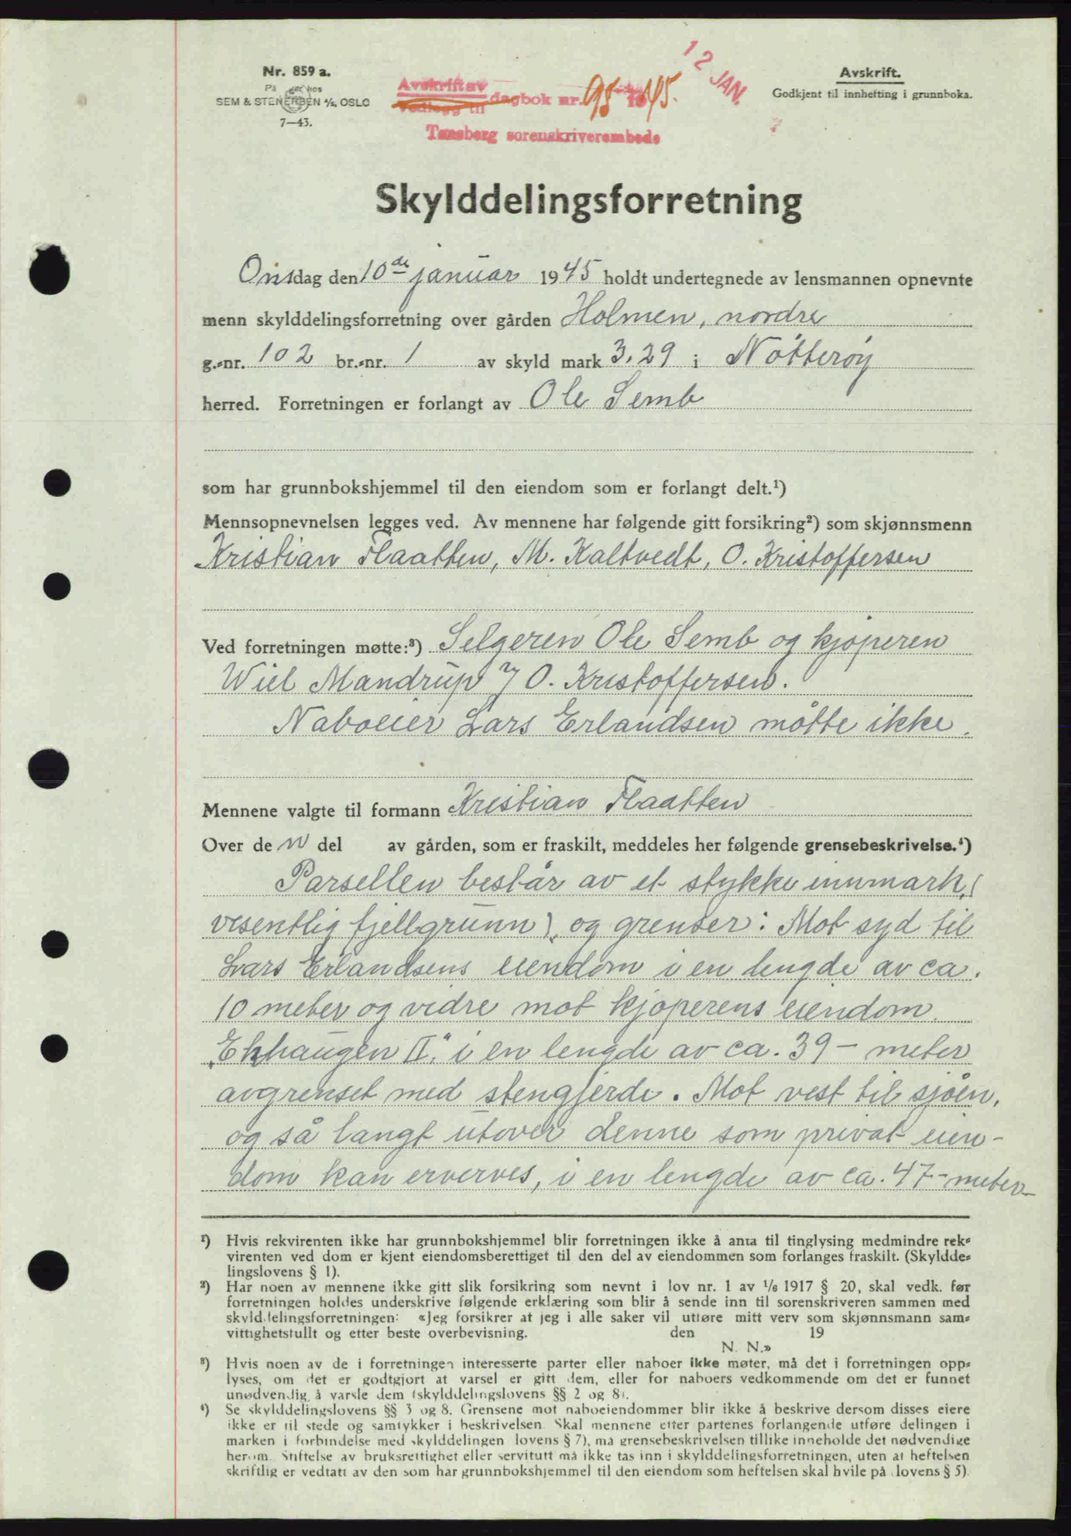 Nr. 859 a.
På lager hos
SEM & STENERSEN A/S, OSLO
7—43.
Avskrift av
vedlegg til
dagbok nr. 95 - 1945.
Tønsberg sorenskriverembede
12 JAN.
Avskrift.
Godkjent til innhefting i grunnboka.
Skylddelingsforretning
Onsdag den 10de januar 1945 holdt undertegnede av lensmannen opnevnte
menn skylddelingsforretning over gården Holmen, nordre
g.-nr. 102 br.-nr. 1 av skyld mark 3.29 i Nøtterøy
herred. Forretningen er forlangt av Ole Semb
som har grunnbokshjemmel til den eiendom som er forlangt delt.¹)
Mennsopnevnelsen legges ved. Av mennene har følgende gitt forsikring²) som skjønnsmenn
Kristian Flaatten, M. Kaltvedt, O. Kristoffersen
Ved forretningen møtte:³) Selgeren Ole Semb og kjøperen
Wiel Mandrup O. Kristoffersen.
Naboeier Lars Erlandsen møtte ikke.
Mennene valgte til formann Kristian Flaatten
Over den del av gården, som er fraskilt, meddeles her følgende grensebeskrivelse.⁴)
Parsellen består av et stykke innmark, (
vesentlig fjellgrunn), og grenser: Mot syd til
Lars Erlandsens eiendom i en lengde av ca.
10 meter og videre mot kjøperens eiendom
„Ekhaugen II." i en lengde av ca. 39 - meter
avgrenset med stengjerde. Mot vest til sjøen,
og så langt utover denne som privat eien-
dom kan erverves, i en lengde av ca. 47 - meter
¹) Hvis rekvirenten ikke har grunnbokshjemmel blir forretningen ikke å anta til tinglysing medmindre rek-
virenten ved dom er kjent eiendomsberettiget til den del av eiendommen som forlanges fraskilt. (Skyldde-
lingslovens § 1).
²) Har noen av mennene ikke gitt slik forsikring som nevnt i lov nr. 1 av 1/6 1917 § 20, skal vedk. før
forretningen holdes underskrive følgende erklæring som blir å sende inn til sorenskriveren sammen med
skylddelingsforretningen: «Jeg forsikrer at jeg i alle saker vil utføre mitt verv som skjønnsmann sam-
vittighetsfullt og etter beste overbevisning. den 19
N. N.»
³) Hvis noen av de i forretningen interesserte parter eller naboer ikke møter, må det i forretningen opp-
lyses, om det er godtgjort at varsel er gitt dem, eller for naboers vedkommende om det er funnet
unødvendig å varsle dem (skylddelingslovens §§ 2 og 8).
⁴) Se skylddelingslovens §§ 3 og 8. Grensene mot naboeiendommer blir ikke å beskrive dersom disses eiere
ikke er til stede og samtykker i beskrivelsen. Skal mennene etter partenes forlangende utføre delingen i
marken i forbindelse med skylddelingen (lovens § 7), må grensebeskrivelsen tillike inneholde det nødvendige
herom. Stiftelse av bruksrettighet eller servitutt må ikke tas inn i skylddelingsforretningen, uten at heftelsen
skriftlig er vedtatt av den som har grunnbokshjemmel til den eiendom som heftelsen skal hvile på (lovens § 5).